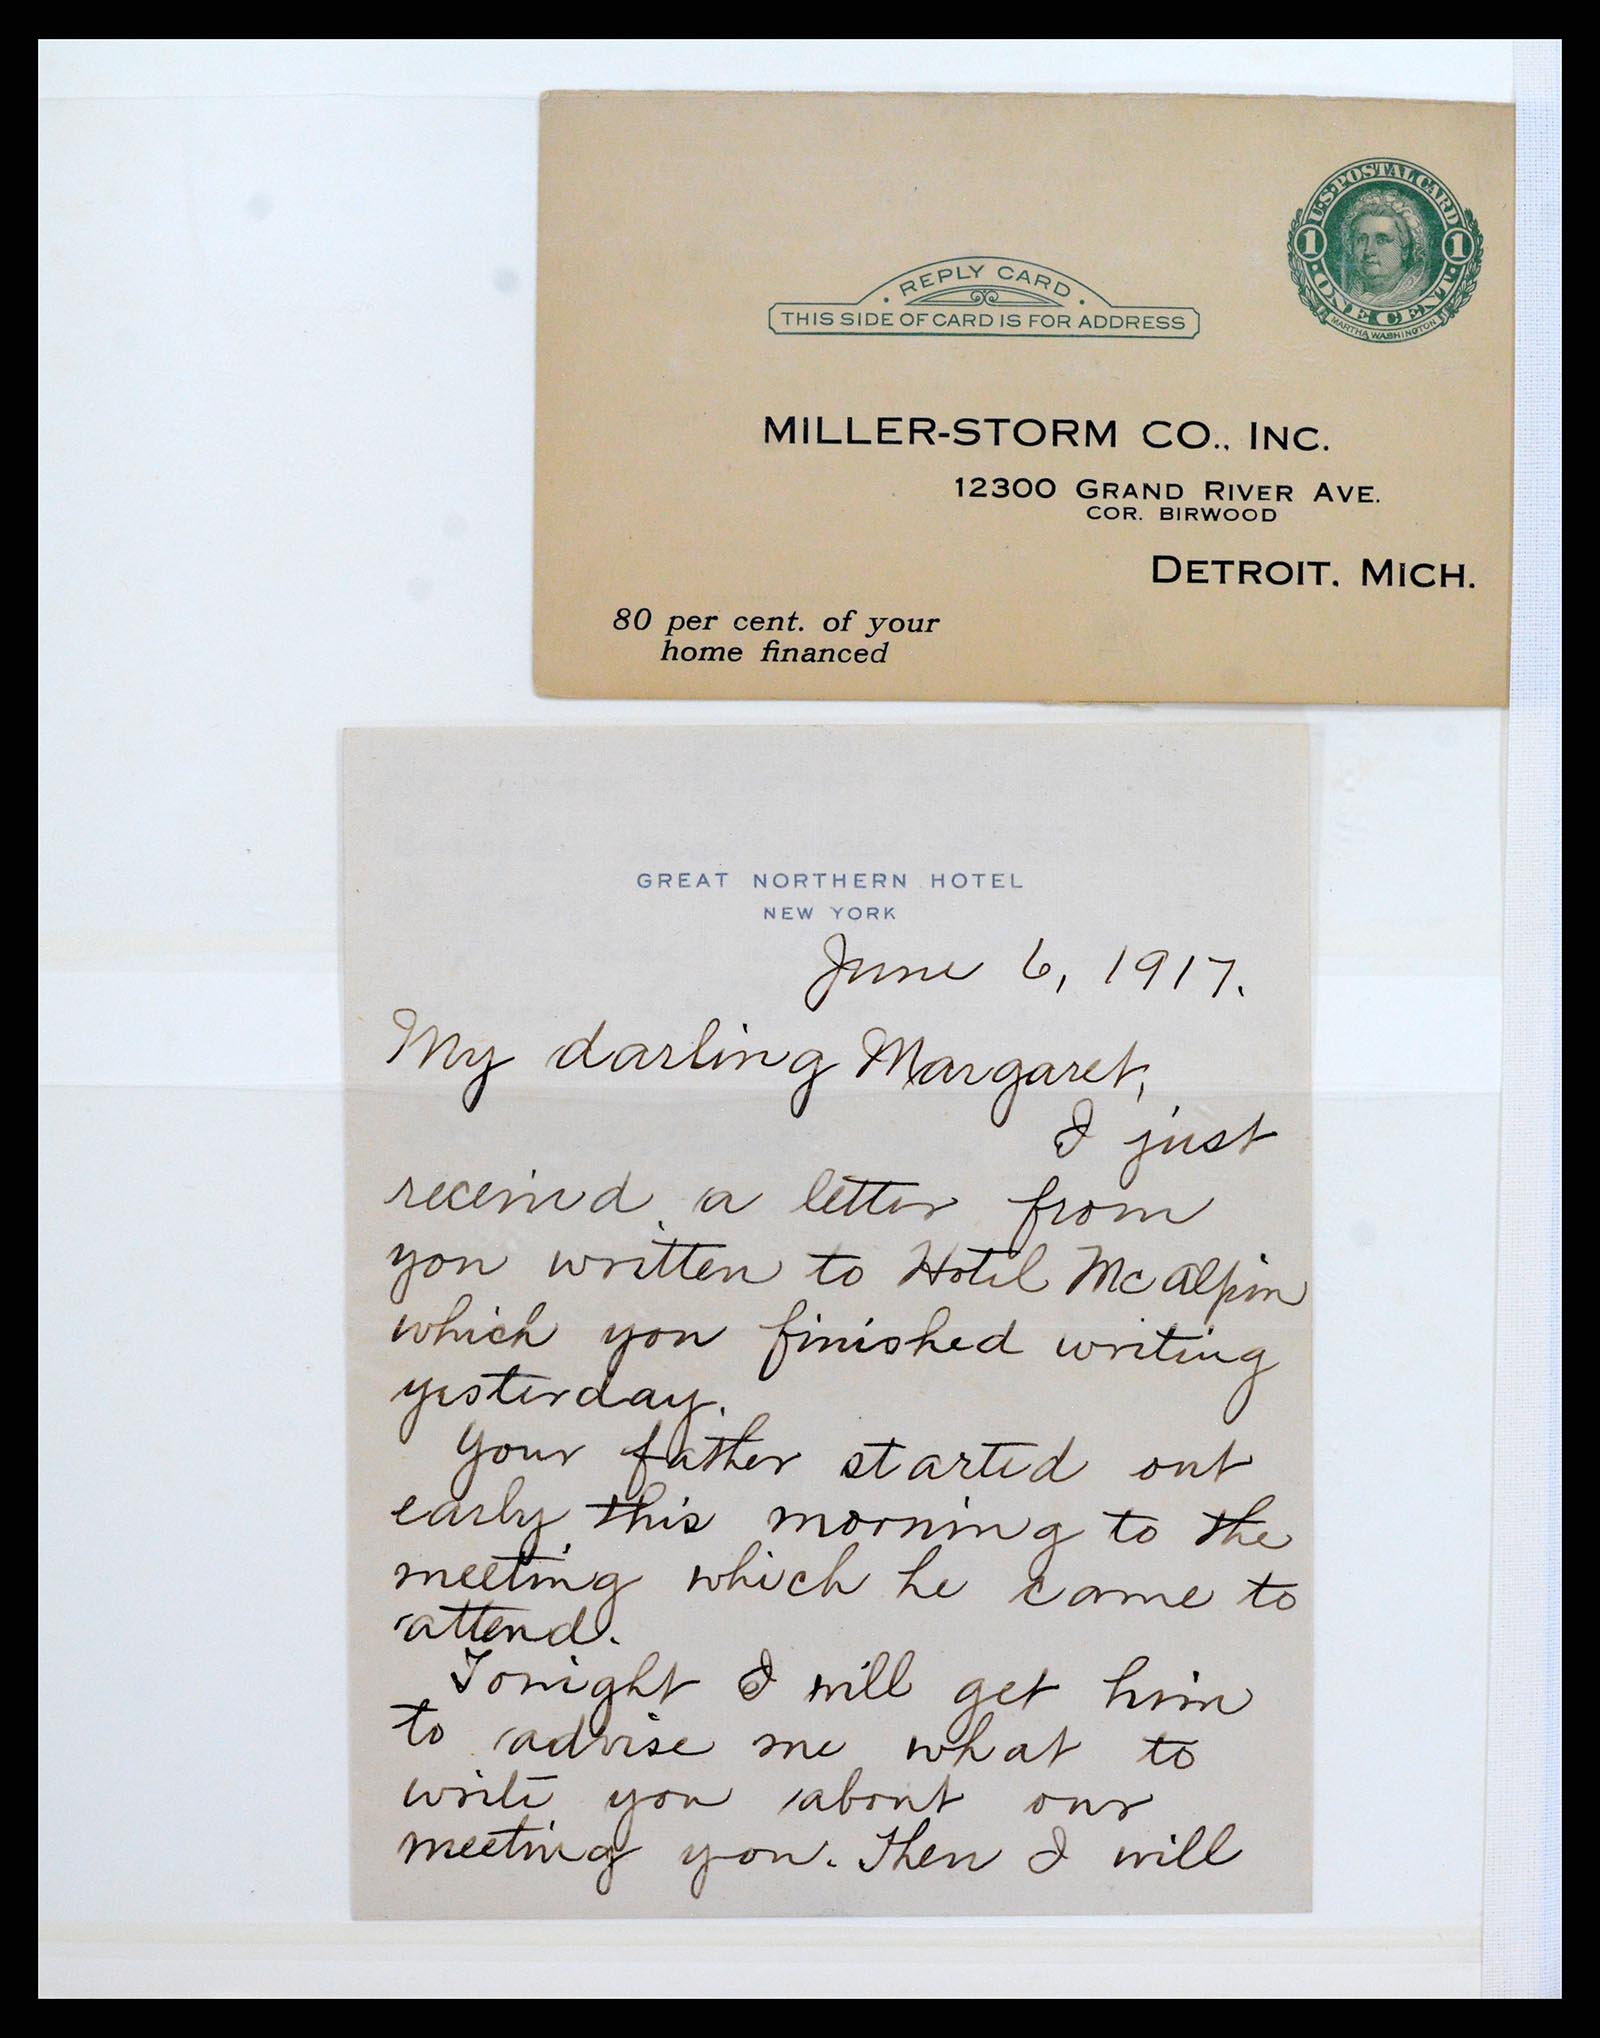 U.S. POSTAL CARD
1 1
ONE CENT
MARTHA WASHINGTON
REPLY CARD
THIS SIDE OF CARD IS FOR ADDRESS
MILLER-STORM CO., INC.
12300 GRAND RIVER AVE.
COR. BIRWOOD
DETROIT, MICH.
80 per cent. of your
home financed
GREAT NORTHERN HOTEL
NEW YORK
June 6, 1917.
My darling Margaret,
I just
received a letter from
you written to Hotel McAlpin
which you finished writing
yesterday.
Your father started out
early this morning to the
meeting which he came to
attend.
Tonight I will get him
to advise me what to
write you about our
meeting you. Then I will